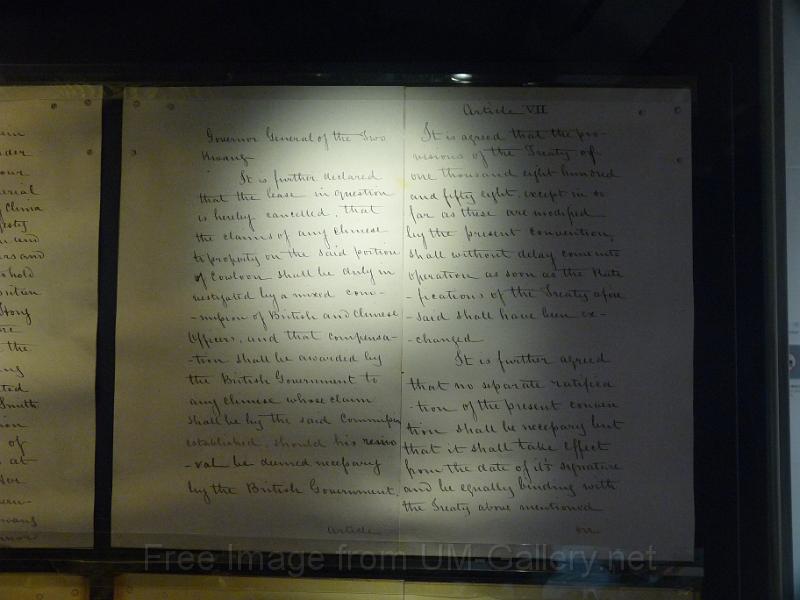 um
nder
our
perial
China
jesty
un and
ers and
Hong
are
at the
ng
Smith
sion
of
as at
ern-
Kwang
Governor General of the Two
Kwang
It is further declared
that the lease in question
is hereby cancelled, that
the claims of any Chinese
to property on the said portion
of Cowloon shall be duly in
vestigated by a mixed com-
-mission of British and Chinese
Officers, and that compensa-
-tion shall be awarded by
the British Government to
any Chinese whose claim
shall be by the said Commission
established, should his remo
-val be deemed necessary
by the British Government.
Article
Article VII
It is agreed that the pro-
visions of the Treaty of
one thousand eight hundred
and fifty eight, except in so
far as these are modified
by the present convention,
shall without delay come into
operation as soon as the Rati
-fications of the Treaty afore
-said shall have been ex-
-changed
It is further agreed
that no separate ratifica
-tion of the present conven
tion shall be necessary but
that it shall take effect
from the date of its signature
and be equally binding with
the Treaty above mentioned
on
Free Image from UM-Gallery.net